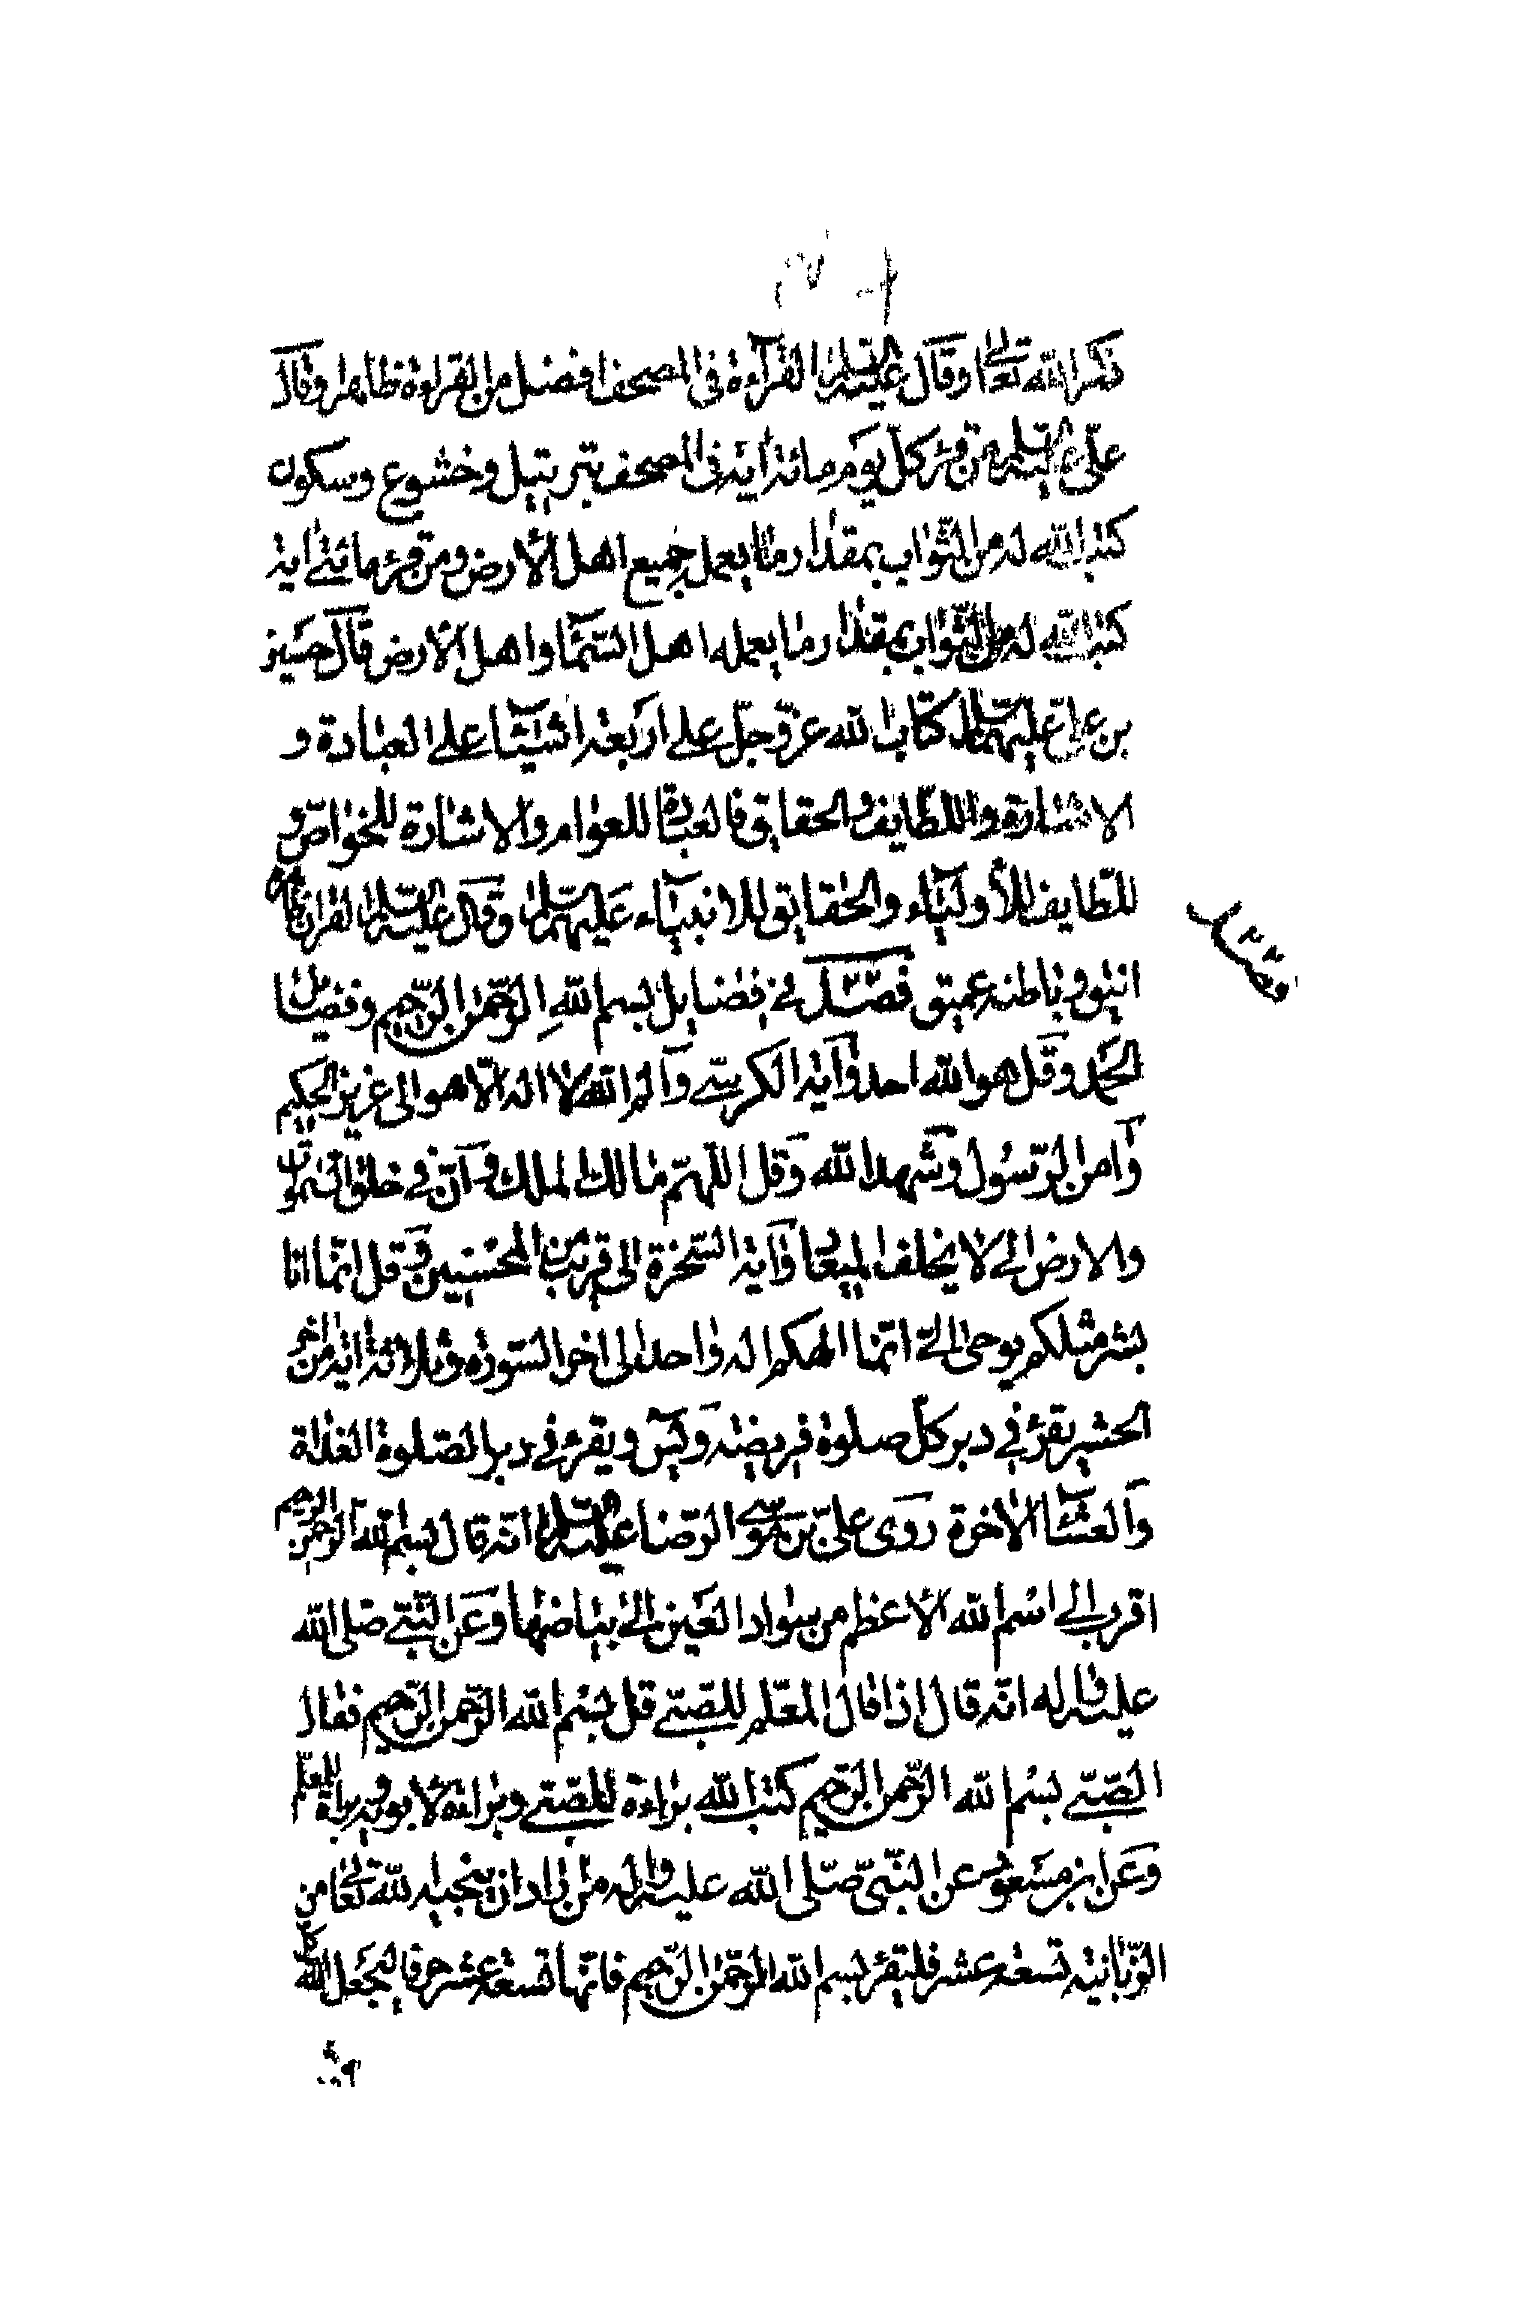 ذكر الله تعالى وقال عليه السلام القرآءة في المصحف افضل من القراءة ظاهرا وقال
علي عليه السلام من قرء كل يوم مائة اية في المصحف بترتيل وخشوع وسكون
كتب الله له من الثواب بمقدار ما يعمله جميع اهل الأرض ومن قرء مائتي اية
كتب الله له من الثواب بمقدار ما يعمله اهل السّمآء واهل الارض قال حسين
بن علي عليهما السلام كتاب الله عزّ وجلّ على اربعة اشيآء على العبادة و
الاشارة واللطايف والحقايق فالعبادة للعوام والاشارة للخواصّ و
اللطايف للأوليآء والحقايق للانبيآء عليهم السلام وقال عليه السلام القران ظاهره
انيق وباطنه عميق فصل في فضايل بسم الله الرّحمن الرّحيم وفضايل
الحمد وقل هو الله احد وآية الكرسيّ والم الله لا اله الّا هو الى عزيز الحكيم
وآمن الرّسول وشهد الله وقل اللّهمّ مالك الملك وانّ في خلق السّموات
والارض الى لا يخلف الميعاد وآية السّخرة الى قريب من المحسنين وقل انّما انا
بشر مثلكم يوحى الىّ انّما الهكم اله واحد الى اخر السّورة وثلاثة اية من اخر
الحشر يقرء في دبر كلّ صلوة فريضة ويس ويقرء في دبر الصّلوة الغداة
والعشآء الآخرة روى عليّ بن موسى الرّضا عليه السلام انّه قال بسم الله الرّحمن الرّحيم
اقرب الى اسم الله الأعظم من سواد العين الى بياضها وعن النّبيّ صلى الله
عليه واله انّه قال اذا قال المعلّم للصّبيّ قل بسم الله الرّحمن الرّحيم فقال
الصّبيّ بسم الله الرّحمن الرّحيم كتب الله براءة للصّبيّ وبراءة لابويه وبراءة للمعلّم
وعن ابن مسعود عن النّبيّ صلّى الله عليه واله من اراد ان ينجيه الله تعالى من
الزّبانية تسعة عشر فليقرء بسم الله الرّحمن الرّحيم فانّها تسعة عشر حرفا ليجعل الله كل
فصل